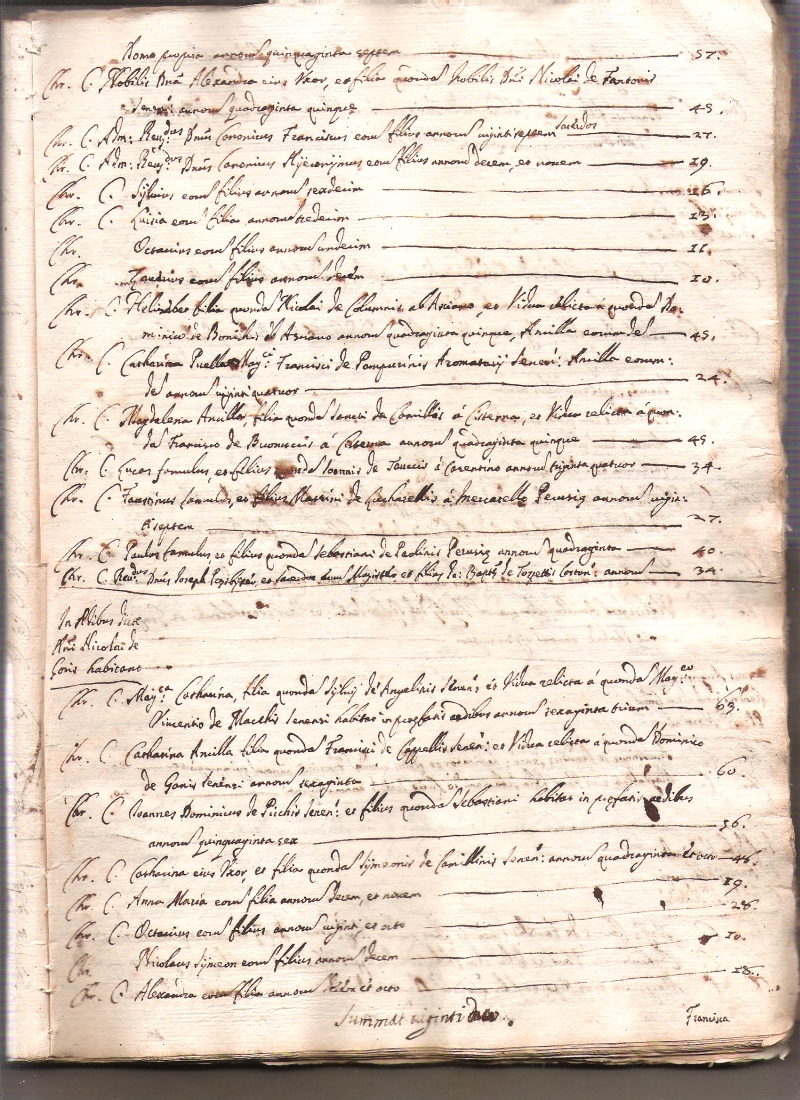 Domo propria annorũ quinquaginta septem 57.
Chr. C. Nobilis Dna Alexandra eius Uxor, et filia quondã Nobilis Dni Nicolai de Fantonis
Senen: annorũ quadraginta quinque 45.
Chr. C. Adm: Reu.dus Dnus Canonicus Franciscus eorũ filius annorũ viginti septem Sacerdos 27.
Chr. C. Adm: Reu.dus Dnus Canonicus Hyeronymus eorũ filius annorũ decem, et novem 19.
Chr. C. Sylvius eorũ filius annorũ sexdecim 16.
Chr. C. Luisia eorũ filia annorũ tredecim 13.
Chr. Octavius eorũ filius annorũ undecim 11.
Chr. eorũ filius annorũ decem 10.
Chr. C. Helisabet filia quondã Nicolai de Columnis ab Asciano, et Vidua relicta à quondã Do:
minico de ab Asciano annorũ quadraginta quinque, Ancilla eorundem 45.
Chr. C. Catharina Puella Mag.ci Francisci de Aromatarij Senen: Ancilla eorum:
dẽ annorũ viginti quatuor 24.
Chr. C. Magdalena Ancilla, filia quondã Sancti de Camillis à Cisterna, et Vidua relicta à quon:
dã Francisco de à Cisterna annorũ quadraginta quinque 45.
Chr. C. Lucas famulus, et filius quondã Ioannis de à annorũ triginta quatuor 34.
Chr. C. Faustinus famulus, et filius de à Mercatello Perusiæ annorũ vigin:
ti septem 27.
Chr. C. Paulus famulus et filius quondã Sebastiani de Paolinis Perusiæ annorũ quadraginta 40.
Chr. C. Reu.dus Dnus Ioseph Presbyter, et Magister et filius Io: Bapt.æ de Corton: annorũ 34.
In Ædibus dicti
Dni Nicolai de
Goris habitant
Chr. C. Mag.ca Catharina, filia quondã Sylvij de Angelinis Senen: et Vidua relicta à quondã Mag.co
Vincentio de Senensi habitat in prefatis ædibus annorũ sexaginta trium 63.
Chr. C. Catharina Ancilla filia quondã Francisci de Cappellis Senen: et Vidua relicta à quondã Dominico
de Goris Senensi annorũ sexaginta 60.
Chr. C. Ioannes Dominicus de Picchis Senen: et filius quondã Sebastiani habitat in prefatis ædibus
annorũ quinquaginta sex 56.
Chr. C. Catharina eius Uxor, et filia quondã Symeonis de Camillinis Senen: annorũ quadraginta et octo 48.
Chr. C. Anna Maria eorũ filia annorũ decem, et novem 19.
Chr. C. Octavius eorũ filius annorũ viginti et octo 28.
Chr. Nicolaus Symeon eorũ filius annorũ decem 10.
Chr. C. Alexandra eorũ filia annorũ decẽ et octo 18.
Summat viginti duo.
Francisca